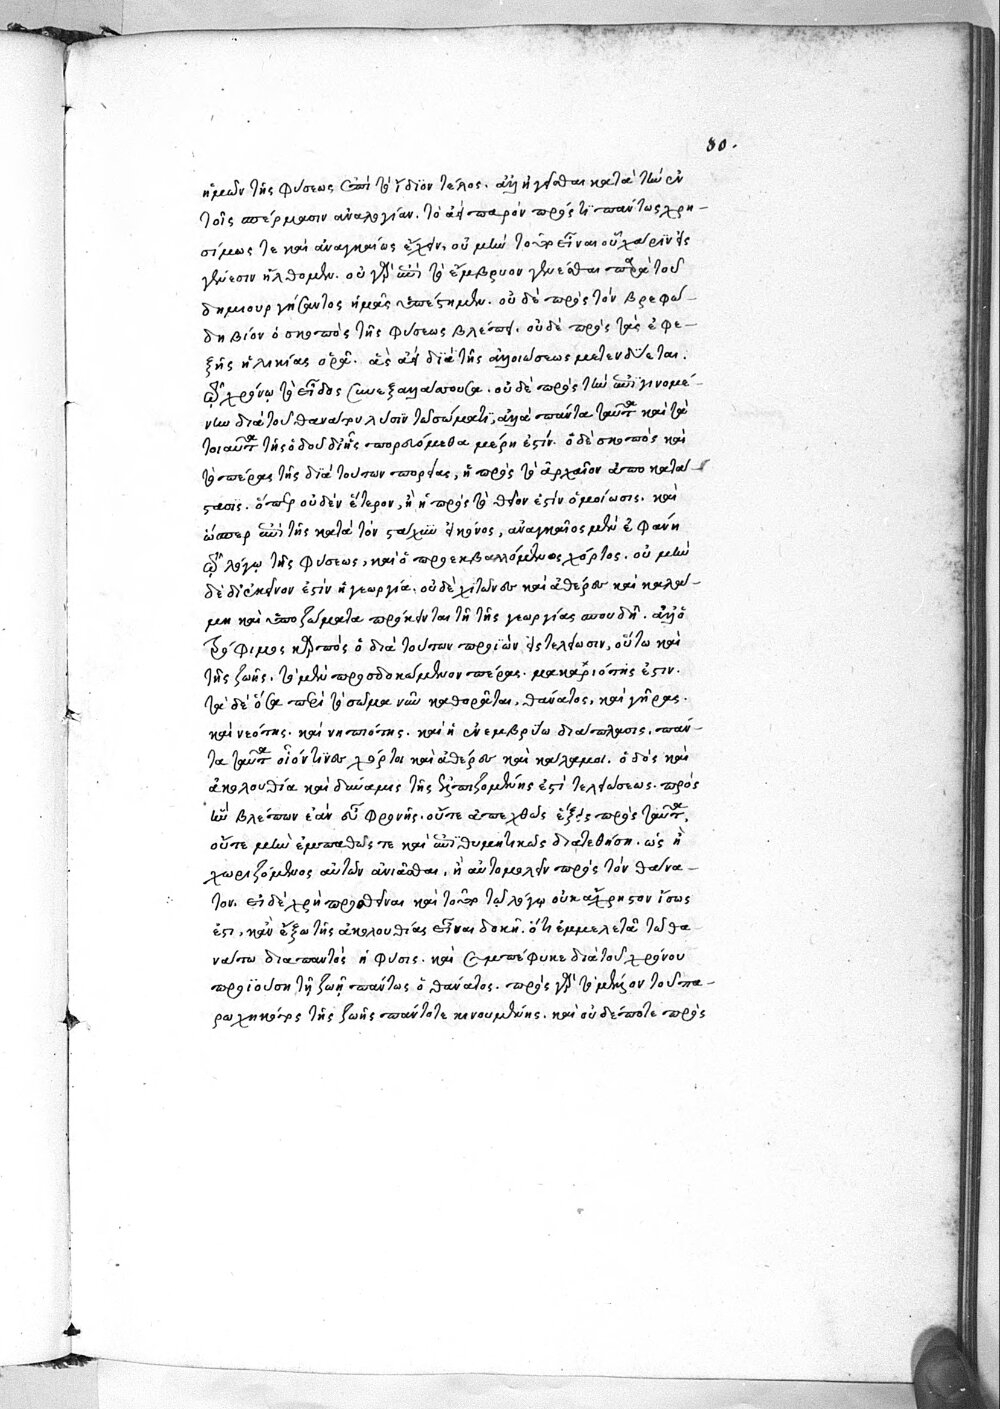 80.
ἡμῶν τῆς φύσεως ἐπὶ τὸ ἴδϊον τέλος. ἀλλ' ἡγεῖσθαι κατὰ τὴν ἐν
τοῖς σπέρμασιν ἀναλογίαν. τὸ ἀεὶ παρὸν πρός τϊ πάντως χρη-
σίμως τε καὶ ἀναγκαίως ἔχειν, οὐ μὴν τούτου εἶναι οὗ χάριν εἰς
γένεσιν ἤλθομεν. οὐ γὰρ ἐπὶ τὸ ἔμβρυον γενέσθαι παρὰ τοῦ
δημιουργήσαντος ἡμᾶς ὑπέστημεν. οὐδὲ πρὸς τὸν βρεφώ-
δη βίον ὁ σκοπὸς τῆς φύσεως βλέπει. οὐδὲ πρὸς τὰς ἐφε-
ξῆς ἡλικίας ὁρᾶ. ἃς ἀεὶ δϊὰ τῆς ἀλλοιώσεως μετενδύεται.
τῷ χρόνῳ τὸ εἶδος συνεξαλλάττουσα. οὐδὲ πρὸς τὴν ἐπιγινομέ-
νην διὰ τοῦ θανάτου λύσϊν τῷ σώματϊ, ἀλλὰ πάντα ταῦτα καὶ τὰ
τοιαῦτα τῆς ὁδοῦ δι' ἧς πορευόμεθα μέρη ἐστίν. ὁ δὲ σκοπὸς καὶ
τὸ πέρας τῆς δϊὰ τούτων πορείας, ἡ πρὸς τὸ ἀρχαῖον ἀποκατά-
στασϊς. ὅπερ οὐδὲν ἕτερον, ἢ ἡ πρὸς τὸ θεῖον ἐστὶν ὁμοίωσις. καὶ
ὥσπερ ἐπὶ τῆς κατὰ τὸν στάχυν εἰκόνος, ἀναγκαῖος μὲν ἐφάνη
τῷ λόγῳ τῆς φύσεως, καὶ ὁ προεκβαλλόμενος χόρτος. οὐ μὴν
δὲ δι' ἐκεῖνον ἐστὶν ἡ γεωργία. οὐδὲ χιτῶνες καὶ ἀθέρες καὶ καλά-
μη καὶ ὑποζώματα πρόκειται τῆ τῆς γεωργίας σπουδῆ. ἀλλ' ὁ
τρόφιμος καρπὸς ὁ διὰ τούτων προϊὼν εἰς τελείωσιν, οὕτω καὶ
τῆς ζωῆς. τὸ μὲν προσδοκώμενον πέρας. μακαριότης ἐστιν.
τὰ δὲ ὅσα περὶ τὸ σῶμα νῦν καθορᾶται, θάνατος, καὶ γῆρας.
καὶ νεότης. καὶ νηπιότης. καὶ ἡ ἐν ἐμβρύω διάπλασις, πάν-
τα ταῦτα οἷόν τινες χόρτοι καὶ ἀθέρες καὶ κάλαμοι. ὁδὸς καὶ
ἀκολουθία καὶ δύναμις τῆς ἐλπιζομένης ἐστὶ τελειώσεως. πρὸς
ἣν βλέπων ἐὰν εὖ φρονῆς. οὔτε ἀπεχθῶς ἕξεις πρὸς ταῦτα,
οὔτε μὴν ἐμπαθῶς τε καὶ ἐπιθυμητικῶς διατεθήση. ὡς ἢ
χωριζόμενος αὐτῶν ἀνιᾶσθαι, ἢ αὐτομολεῖν πρὸς τὸν θάνα-
τον. εἰ δὲ χρὴ προσθεῖναι καὶ τοῦτο τῷ λόγῳ οὐκ ἄχρηστον ἴσως
ἐστι, κἂν ἔξω τῆς ἀκολουθίας εἶναι δοκῆ. ὅτι ἐμμελετᾶ τῷ θα-
νάτω διαπαντὸς ἡ φύσις. καὶ συμπέφυκε διὰ τοῦ χρόνου
προϊούση τῆ ζωῆ πάντως ὁ θάνατος. πρὸς γὰρ τὸ μέλλον τοῦ πα-
ρωχηκότος τῆς ζωῆς πάντοτε κινουμένης. καὶ οὐδέποτε πρὸς